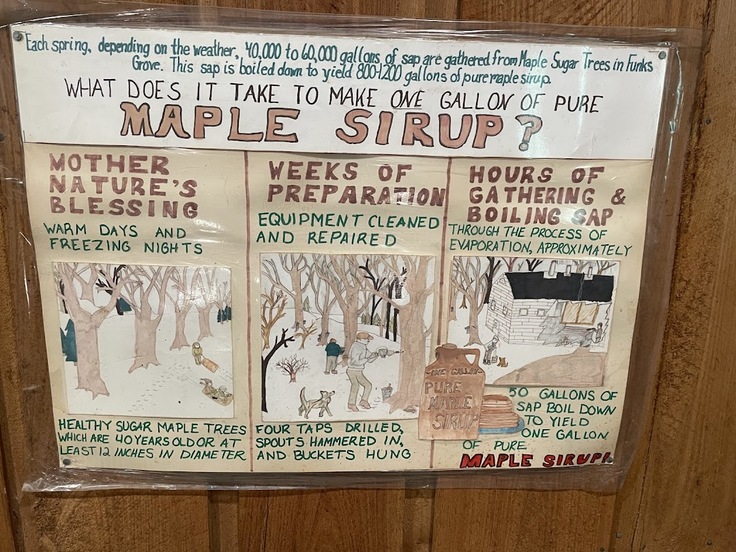 Each spring, depending on the weather, 40,000 to 60,000 gallons of sap are gathered from Maple Sugar Trees in Funks
Grove. This sap is boiled down to yield 800-1200 gallons of pure maple sirup.
WHAT DOES IT TAKE TO MAKE ONE GALLON OF PURE
MAPLE SIRUP?
MOTHER
NATURE'S
BLESSING
WARM DAYS AND
FREEZING NIGHTS
HEALTHY SUGAR MAPLE TREES
WHICH ARE 40 YEARS OLD OR AT
LEAST 12 INCHES IN DIAMETER
WEEKS OF
PREPARATION
EQUIPMENT CLEANED
AND REPAIRED
FOUR TAPS DRILLED,
SPOUTS HAMMERED IN,
AND BUCKETS HUNG
HOURS OF
GATHERING &
BOILING SAP
THROUGH THE PROCESS OF
EVAPORATION, APPROXIMATELY
ONE GALLON
PURE
MAPLE
SIRUP
50 GALLONS OF
SAP BOIL DOWN
TO YIELD
ONE GALLON
OF PURE
MAPLE SIRUP!